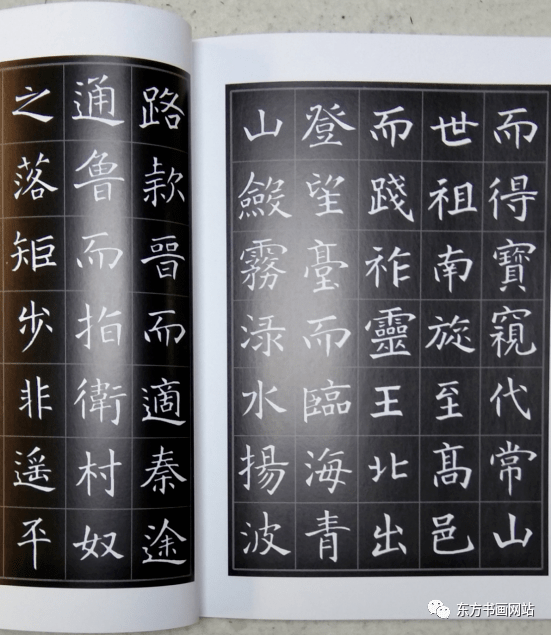 而得寶窺代常山
世祖南旋至髙邑
而踐祚靈王北出
登望臺而臨海青
山斂霧渌水揚波
路款晉而適秦途
通魯而指衛村奴
之落矩步非遥平
东方书画网站